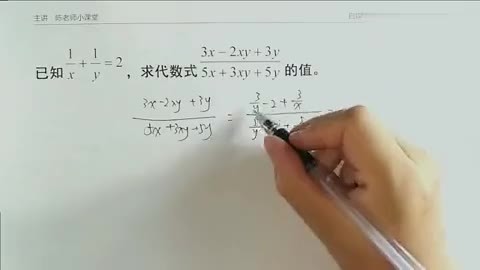 主讲：陈老师小课堂
已知 1/x + 1/y = 2 ，求代数式 (3x - 2xy + 3y)/(5x + 3xy + 5y) 的值。
(3x - 2xy + 3y)/(5x + 3xy + 5y) = (3/y - 2 + 3/x)/